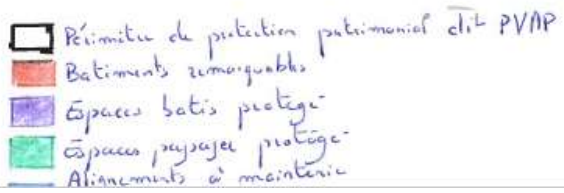 Périmètre de protection patrimonial dit PVAP
Batiments remarquables
Espaces batis protégé
Espaces paysager protégé
Alignements à maintenir